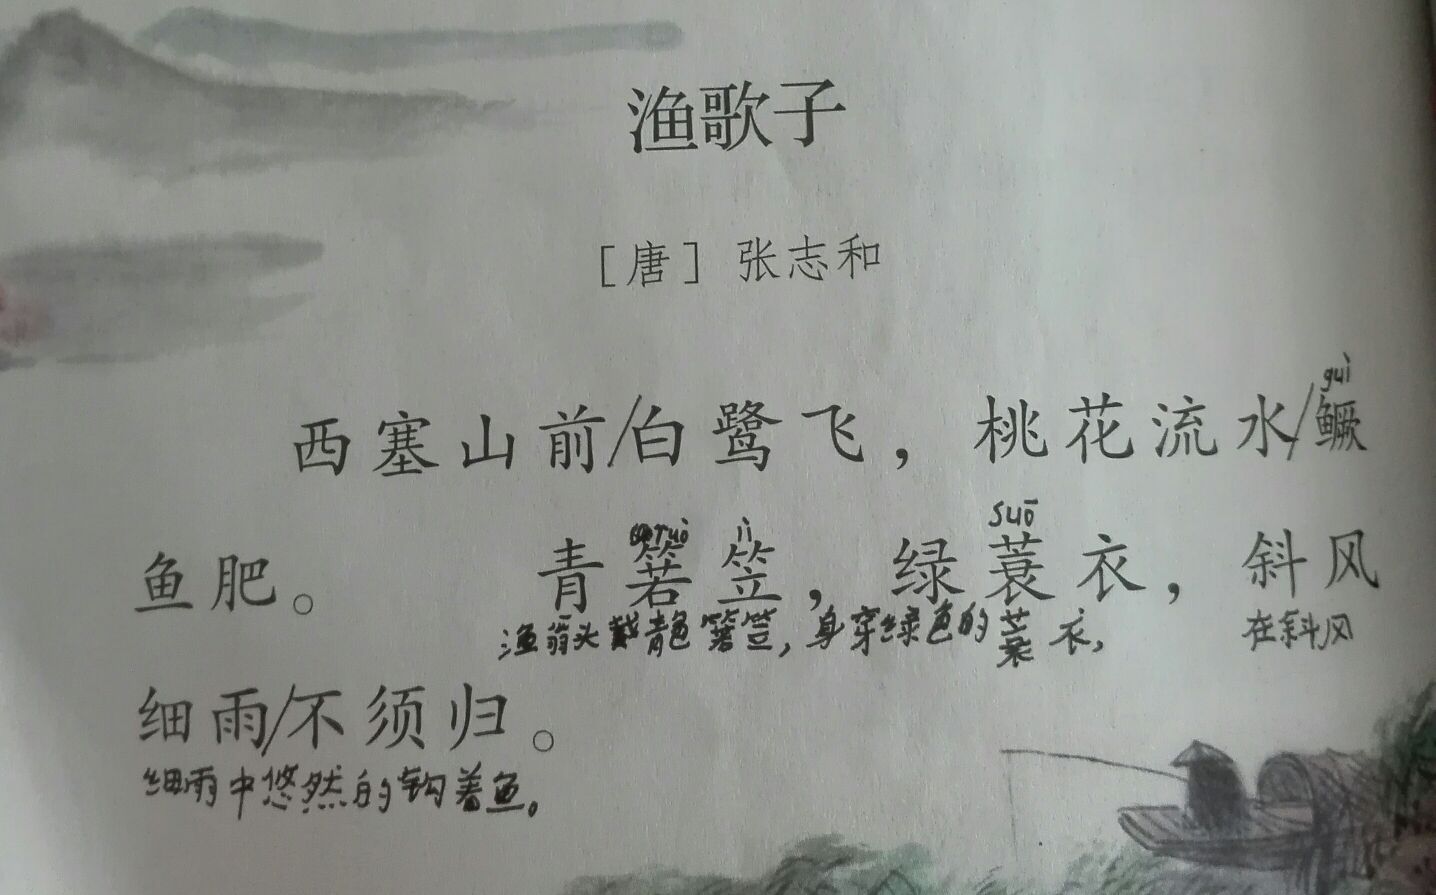 渔歌子
［唐］张志和
guì
西塞山前/白鹭飞，桃花流水/鳜
ruò lì suō
鱼肥。 青箬笠，绿蓑衣，斜风
渔翁头戴青色箬笠，身穿绿色的蓑衣，在斜风
细雨/不须归。
细雨中悠然的钓着鱼。